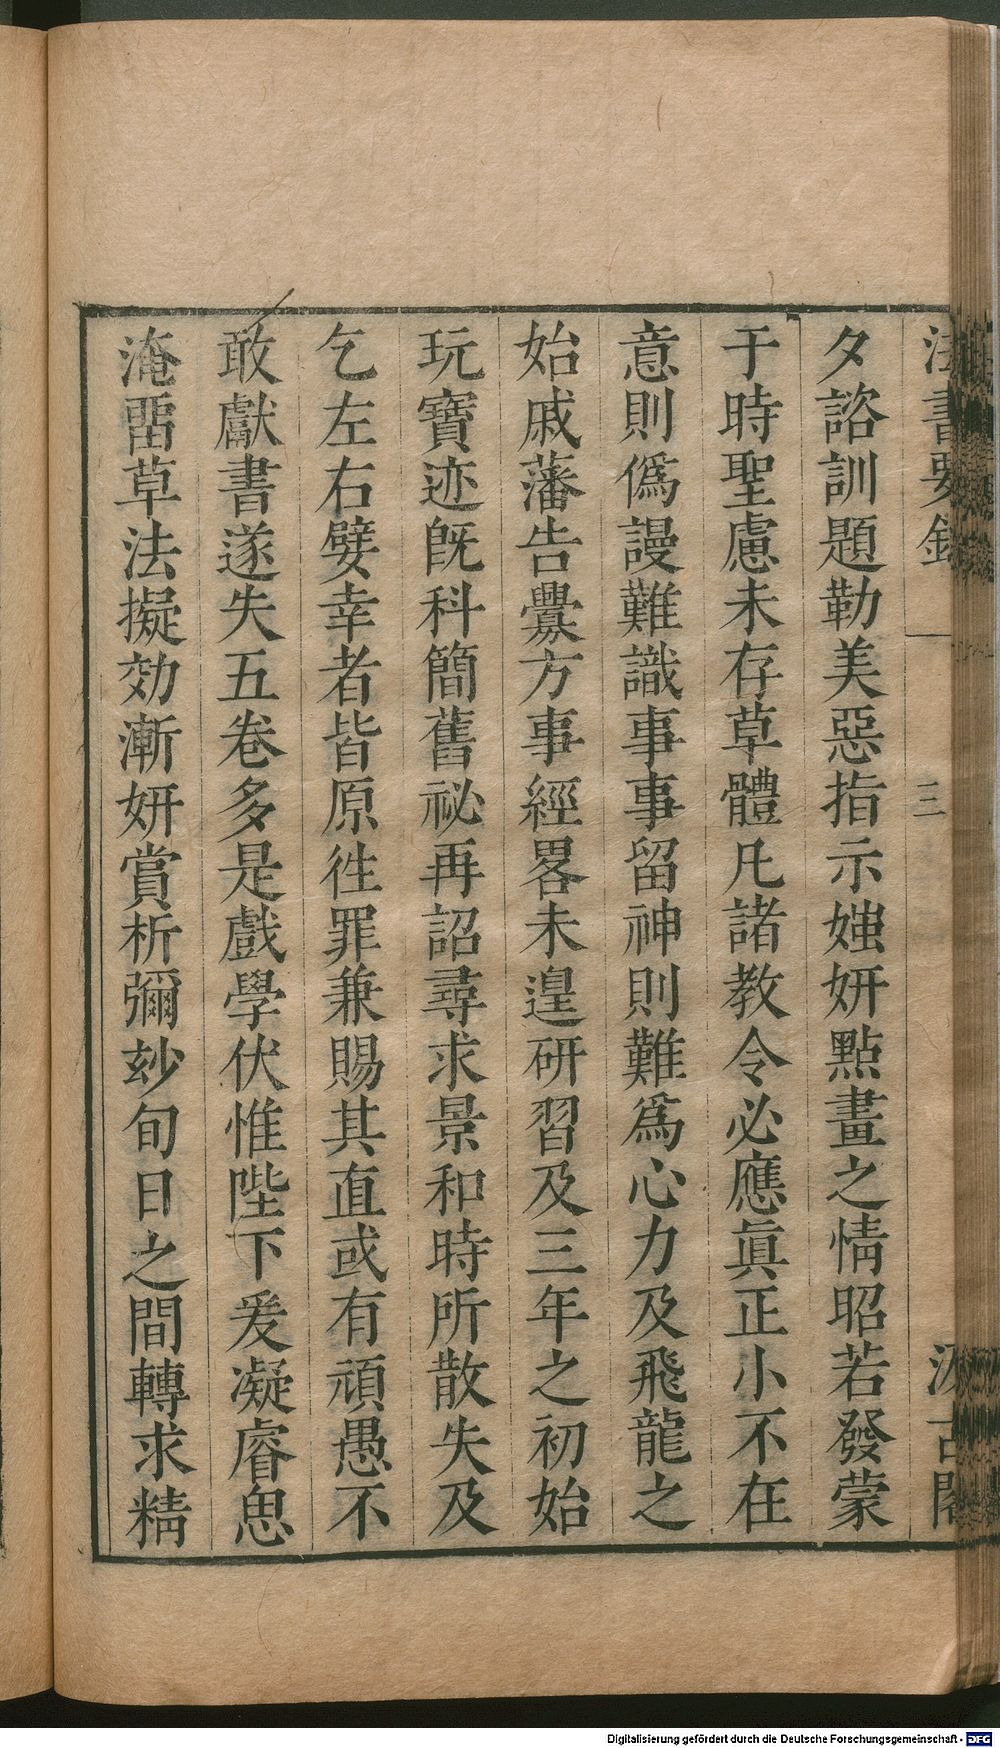 法書要錄 一 三 汲古閣
夕諮訓題勒美惡指示媸妍點畫之情昭若發蒙
于時聖慮未存草體凡諸教令必應眞正小不在
意則僞謾難識事事留神則難爲心力及飛龍之
始戚藩告釁方事經畧未遑研習及三年之初始
玩寶迹旣科簡舊祕再詔尋求景和時所散失及
乞左右嬖幸者皆原徃罪兼賜其直或有頑愚不
敢獻書遂失五卷多是戲學伏惟陛下爰凝睿思
淹畱草法擬効漸妍賞析彌玅旬日之間轉求精
Digitalisierung gefördert durch die Deutsche Forschungsgemeinschaft - DFG